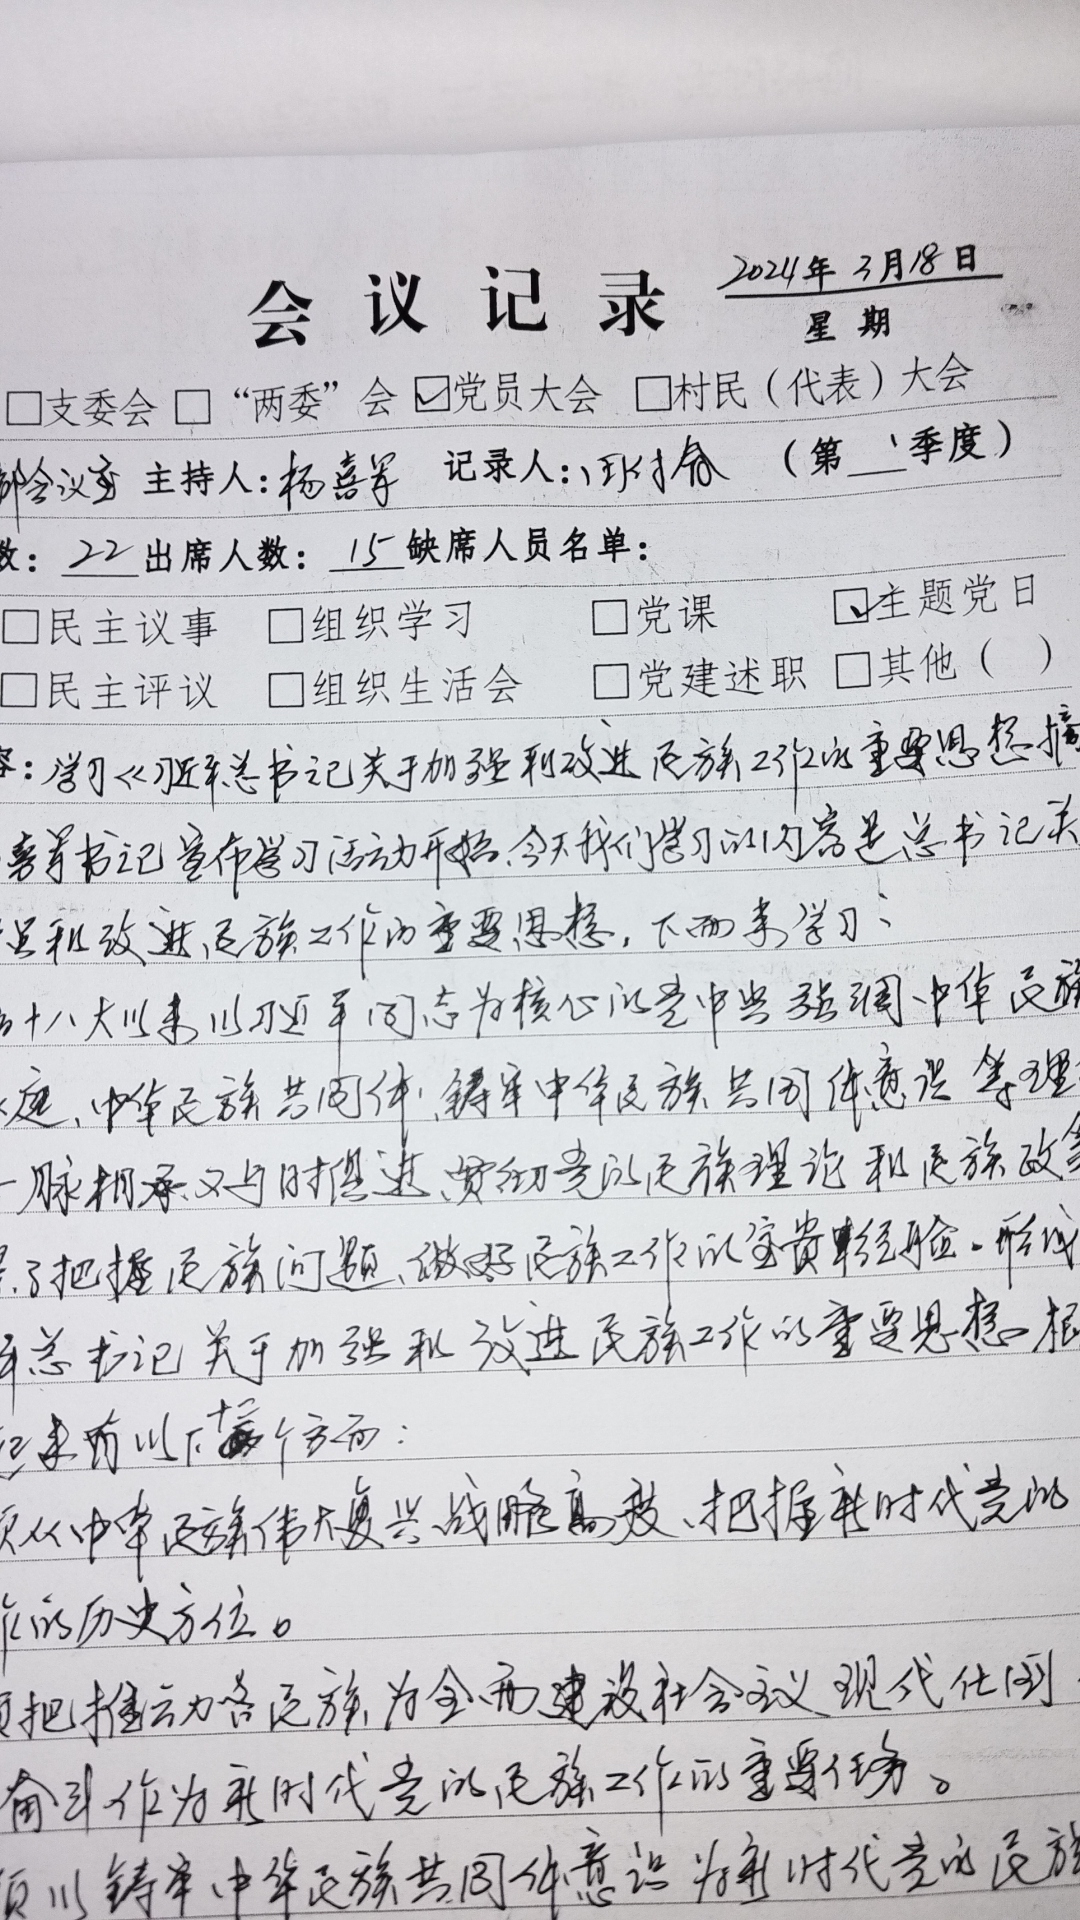 会议记录
2024年3月18日
星期
□支委会 □“两委”会 ☑党员大会 □村民（代表）大会
部会议室 主持人:杨喜军 记录人: （第1季度）
数:22出席人数:15缺席人员名单:
□民主议事 □组织学习 □党课 ☑主题党日
□民主评议 □组织生活会 □党建述职 □其他（ ）
容:学习《习近平总书记关于加强和改进民族工作的重要思想摘
喜军书记宣布学习活动开始,今天我们学习的内容是总书记关
强和改进民族工作的重要思想,下面来学习:
的十八大以来以习近平同志为核心的党中央强调、中华民族
庭、中华民族共同体、铸牢中华民族共同体意识等理
一脉相承又与时俱进、贯彻党的民族理论和民族政策
累了把握民族问题、做好民族工作的宝贵经验。形成
平总书记关于加强和改进民族工作的重要思想。概
起来有以下十二个方面:
须从中华民族伟大复兴战略高度、把握新时代党的
作的历史方位。
须把推动各民族为全面建设社会主义现代化国
奋斗作为新时代党的民族工作的重要任务。
须以铸牢中华民族共同体意识为新时代党的民族